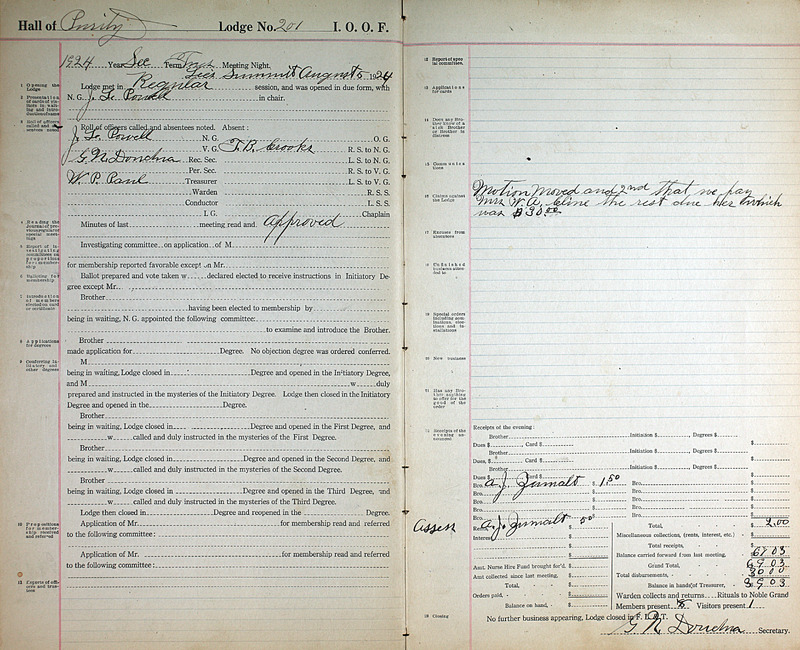 Hall of Purity Lodge No. 201 I. O. O. F.
1924 Year Sec Term Meeting Night.
Lees Summit August 5 1924
Lodge met in Regular session, and was opened in due form, with
N. G. J. Le Powell in chair.
Roll of officers called and absentees noted. Absent:
J. Le Powell N. G. O. G.
V. G. T. B. Crooks R. S. to N. G.
G. N. Rec. Sec. L. S. to N. G.
Per. Sec. R. S. to V. G.
W. P. Paul Treasurer L. S. to V. G.
Warden R. S. S.
Conductor L. S. S.
I. G. Chaplain
Minutes of last meeting read and Approved
Investigating committee on application of M
for membership reported favorable except on Mr.
Ballot prepared and vote taken w declared elected to receive instructions in Initiatory De-
gree except Mr.
Brother
having been elected to membership by
being in waiting, N. G. appointed the following committee:
to examine and introduce the Brother.
Brother
made application for Degree. No objection degree was ordered conferred.
M
being in waiting, Lodge closed in Degree and opened in the Initiatory Degree,
and M w duly
prepared and instructed in the mysteries of the Initiatory Degree. Lodge then closed in the Initiatory
Degree and opened in the Degree.
Brother
being in waiting, Lodge closed in Degree and opened in the First Degree, and
w called and duly instructed in the mysteries of the First Degree.
Brother
being in waiting, Lodge closed in Degree and opened in the Second Degree, and
w called and duly instructed in the mysteries of the Second Degree.
Brother
being in waiting, Lodge closed in Degree and opened in the Third Degree, and
w called and duly instructed in the mysteries of the Third Degree.
Lodge then closed in Degree and reopened in the Degree.
Application of Mr. for membership read and referred
to the following committee:
Application of Mr. for membership read and referred
to the following committee:
12 Report of special committees.
13 Applications for cards
14 Does any Brother know of a sick Brother or Brother in distress
15 Communications
16 Claims against the Lodge
Motion moved and 2nd that we pay
Mrs W. A. Cline the rest due her which
was $30.00
17 Excuses from absentees
18 Unfinished business attended to
19 Special orders including nominations, elections and installations
20 New business
21 Has any Brother anything to offer for the good of the order
22 Receipts of the evening announced
Receipts of the evening:
Brother Initiation $ , Degrees $
Dues $ Card $ $
Brother Initiation $ , Degrees $
Dues, $ Card $ $
Brother Initiation $ , Degrees $
Dues $ Card $ $
Bro. A. J. Zumalt $ 1.50 Bro. $
Bro. $ Bro. $
Bro. $ Bro. $
Bro. $ Bro. $
Assess A. J. Zumalt 50 Total, 2.00
Interest Miscellaneous collections, (rents, interest, etc.) $
Total receipts,
$ Balance carried forward from last meeting, 67 03
Amt. Nurse Hire Fund brought for'd. $ Grand Total, 69 03
Amt collected since last meeting, $ Total disbursements, 30 00
Total, $ Balance in hands of Treasurer, 39 03
Orders paid, $ Warden collects and returns Rituals to Noble Grand
Balance on hand, $ Members present 5 Visitors present 1
23 Closing No further business appearing, Lodge closed in F. L. & T.
G. N. Secretary.